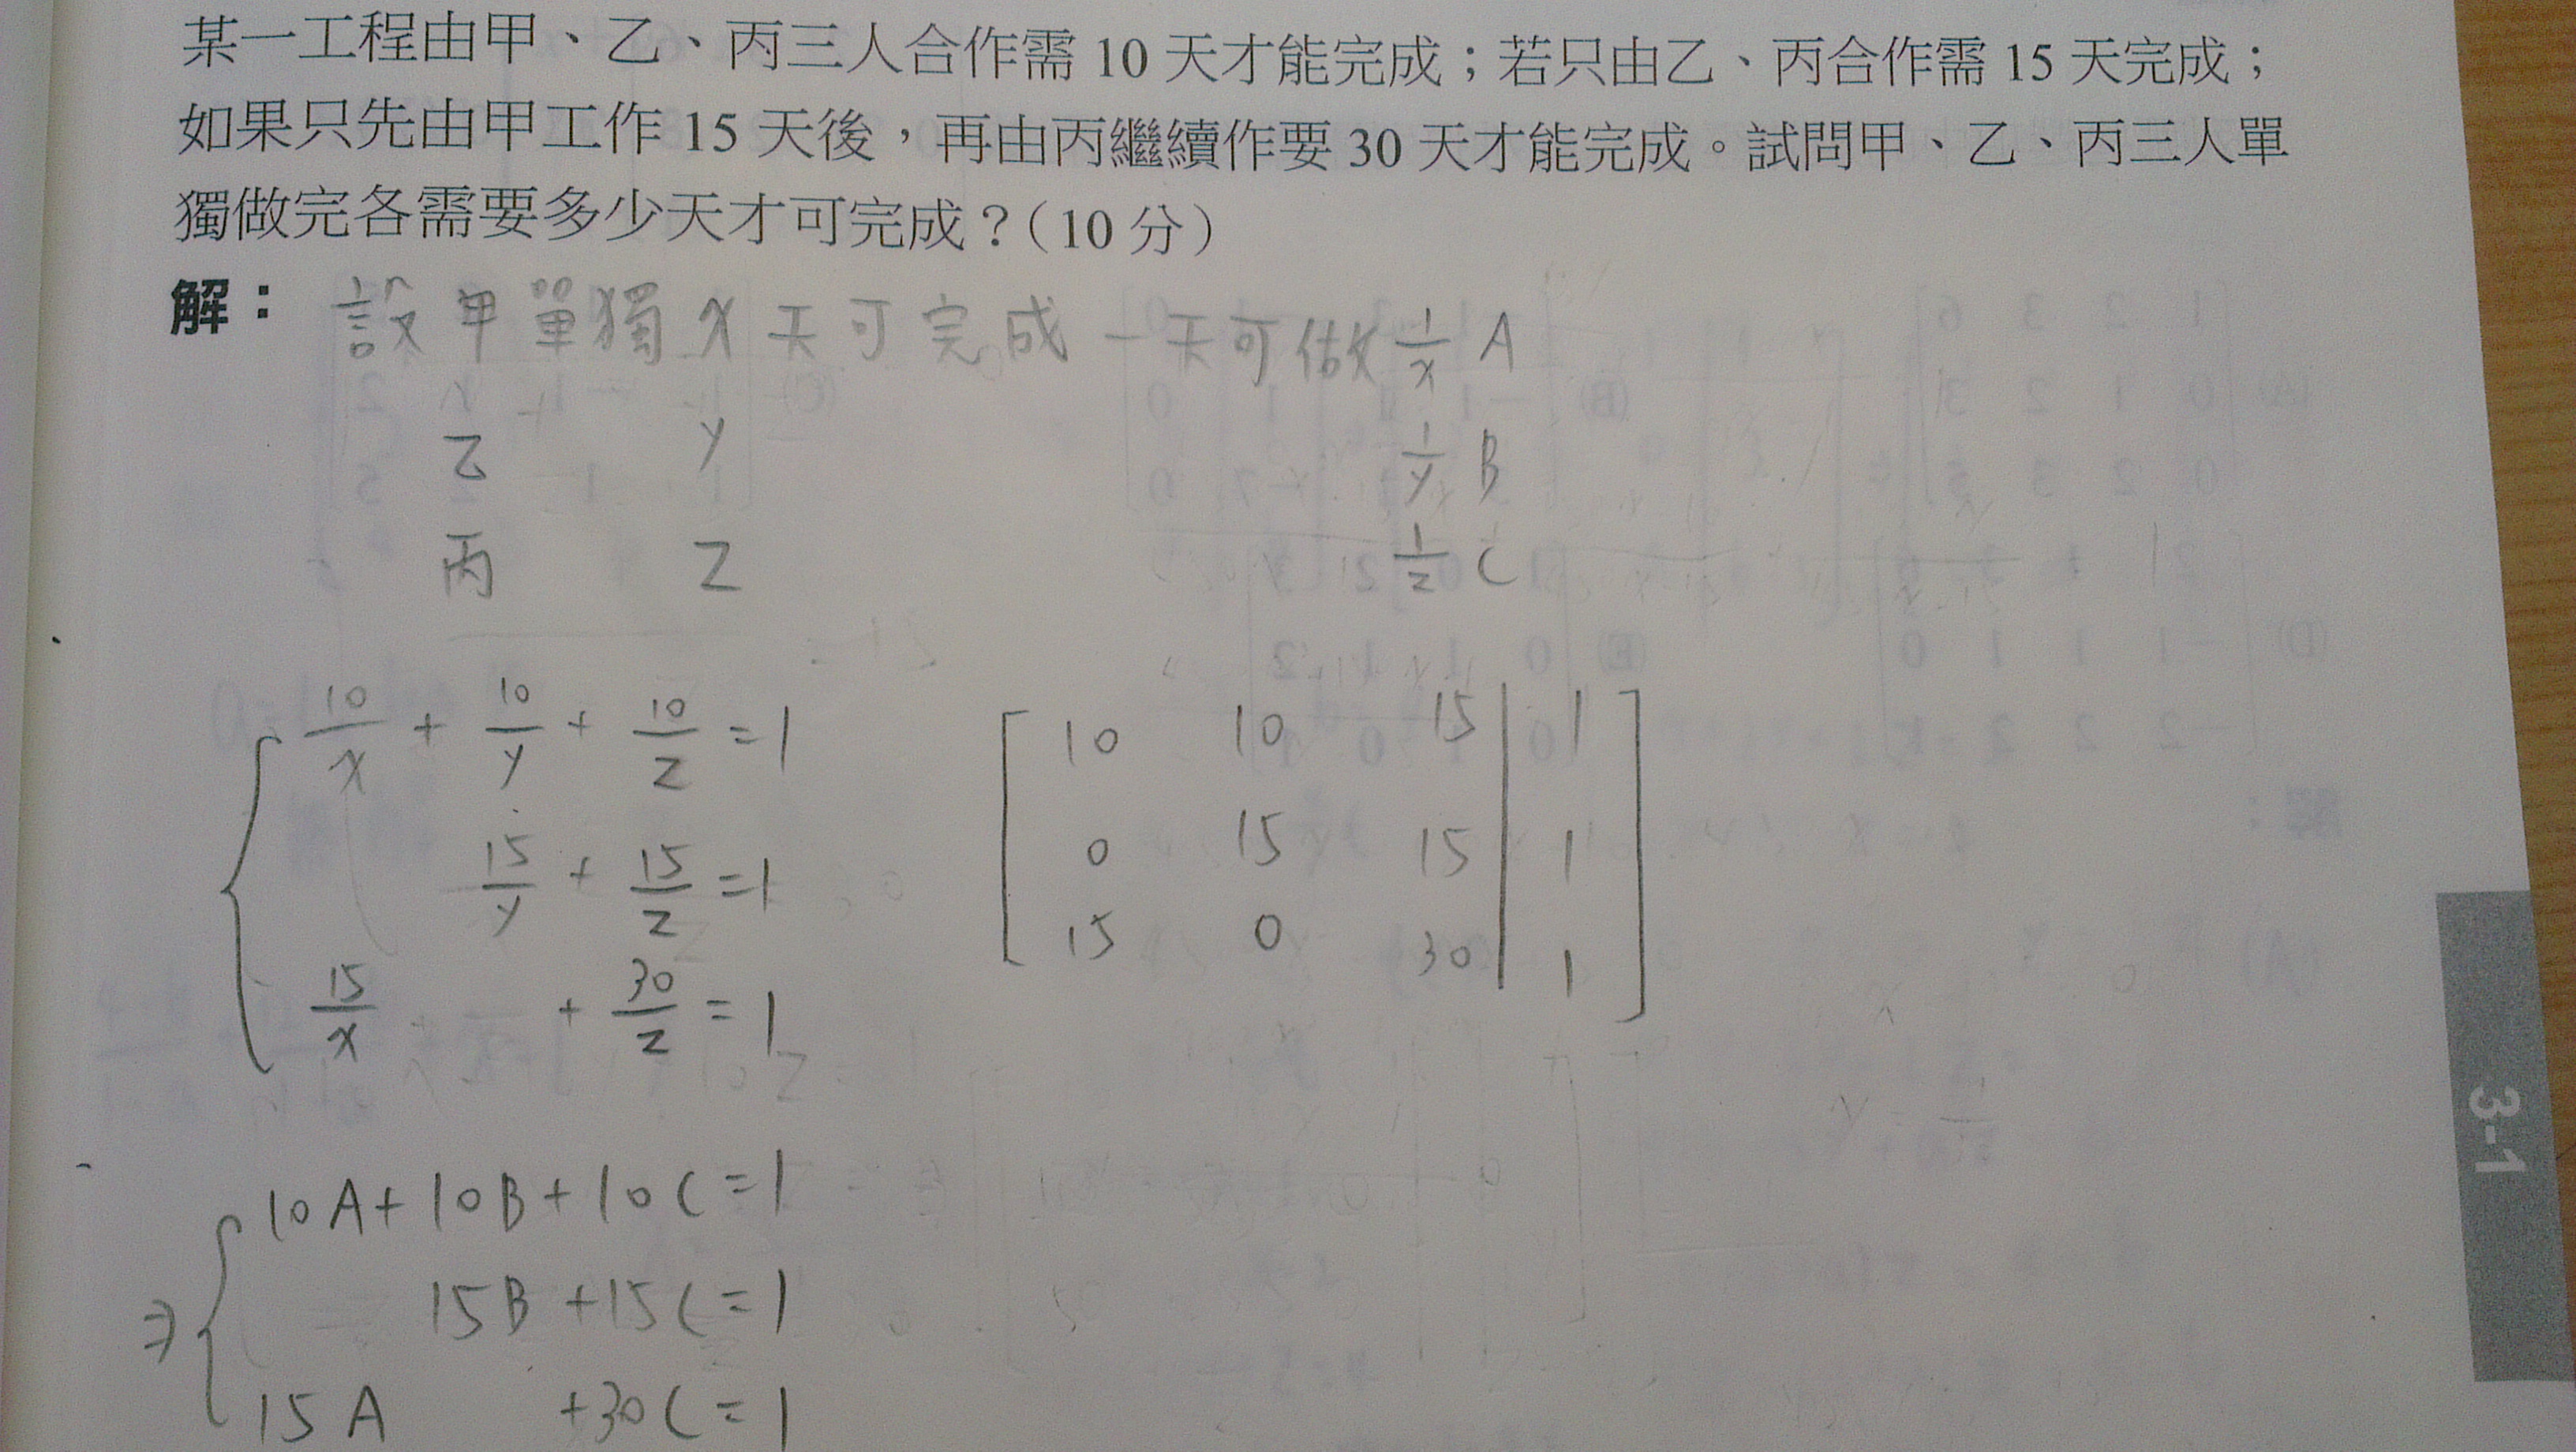 某一工程由甲、乙、丙三人合作需 10 天才能完成；若只由乙、丙合作需 15 天完成；
如果只先由甲工作 15 天後，再由丙繼續作要 30 天才能完成。試問甲、乙、丙三人單
獨做完各需要多少天才可完成？（10 分）
解： 設甲單獨 x 天可完成 一天可做 1/x A
乙 y 1/y B
丙 z 1/z C
10/x + 10/y + 10/z = 1
15/y + 15/z = 1
15/x + 30/z = 1
10 10 15 | 1
0 15 15 | 1
15 0 30 | 1
10A + 10B + 10C = 1
⇒ 15B + 15C = 1
15A + 30C = 1
3-1